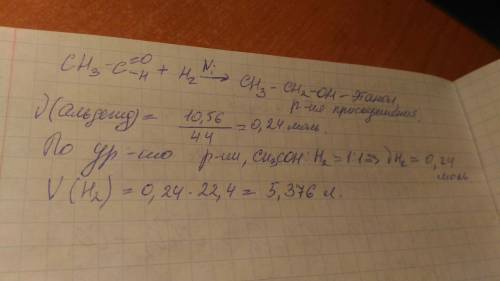 CH₃-C=O-H + H₂ →Ni CH₃-CH₂-OH-Этанол
р-ия присоединения
ν(альдегид) = 10,56/44 = 0,24 моль.
По ур-нию р-ии, CH₃COH:H₂ = 1:1 ⇒ νH₂ = 0,24 моль
V(H₂) = 0,24 · 22,4 = 5,376 л.